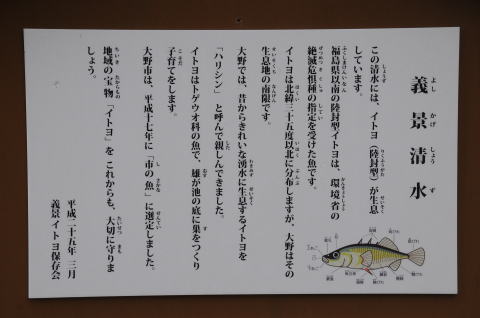 義景清水
よし かげ しょう ず
この清水には、イトヨ（陸封型）が生息
しています。
福島県以南の陸封型イトヨは、環境省の
絶滅危惧種の指定を受けた魚です。
イトヨは北緯三十五度以北に分布しますが、大野はその
生息地の南限です。
大野では、昔からきれいな湧水に生息するイトヨを
「ハリシン」と呼んで親しんできました。
イトヨはトゲウオ科の魚で、雄が池の底に巣をつくり
子育てをします。
大野市は、平成十七年に「市の魚」に選定しました。
地域の宝物「イトヨ」を これからも、大切に守りま
しょう。
平成二十五年 三月
義景イトヨ保存会